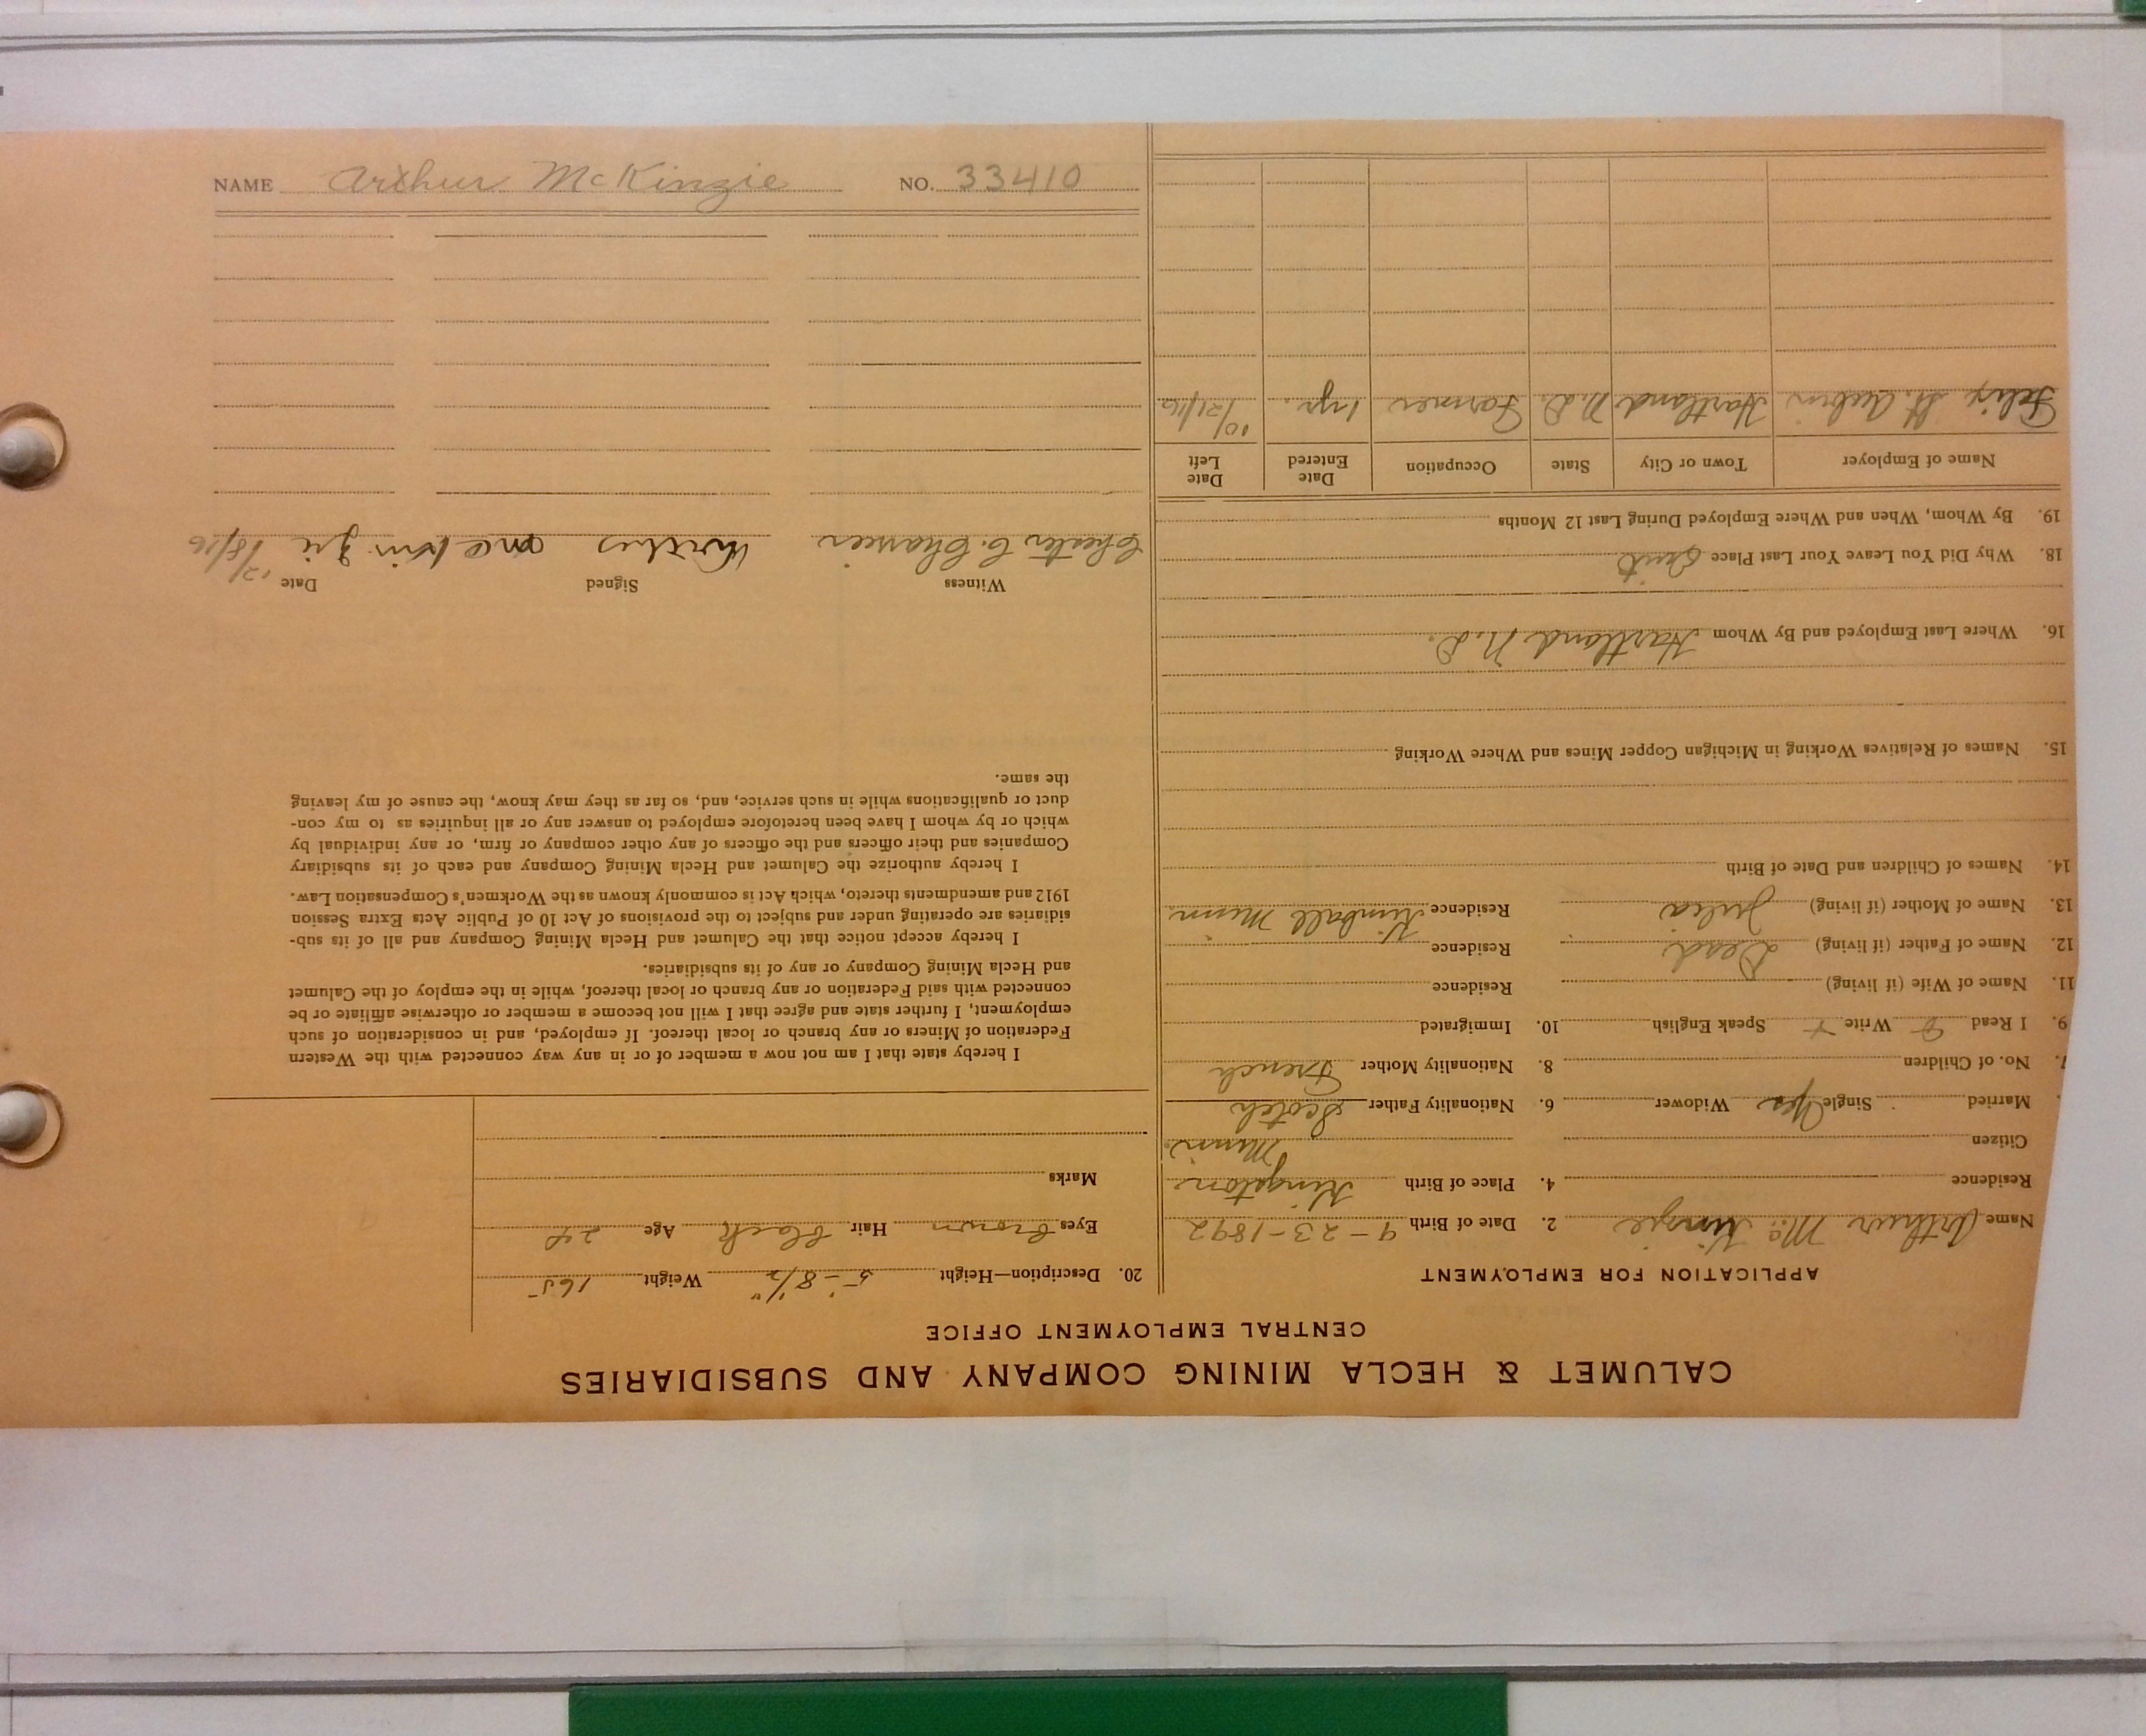 CALUMET & HECLA MINING COMPANY AND SUBSIDIARIES
CENTRAL EMPLOYMENT OFFICE
APPLICATION FOR EMPLOYMENT
Name Arthur Mc Kinzie 2. Date of Birth 9-23-1892
Residence 4. Place of Birth Kingston
Citizen Minn.
Married Single Yes Widower 6. Nationality Father Scotch
7. No. of Children 8. Nationality Mother French
9. I Read Write Speak English 10. Immigrated
11. Name of Wife (if living) Residence
12. Name of Father (if living) Dead Residence
13. Name of Mother (if living) Julia Residence Kimball Minn.
14. Names of Children and Date of Birth
15. Names of Relatives Working in Michigan Copper Mines and Where Working
16. Where Last Employed and By Whom Hartland N.D.
18. Why Did You Leave Your Last Place Quit
19. By Whom, When and Where Employed During Last 12 Months
Name of Employer Town or City State Occupation Date Entered Date Left
Felix St. Aubin Hartland N.D. Farmer 1 yr. 10/21/16
20. Description—Height 5'-8 1/2" Weight 165
Eyes brown Hair black Age 24
Marks
I hereby state that I am not now a member of or in any way connected with the Western
Federation of Miners or any branch or local thereof. If employed, and in consideration of such
employment, I further state and agree that I will not become a member or otherwise affiliate or be
connected with said Federation or any branch or local thereof, while in the employ of the Calumet
and Hecla Mining Company or any of its subsidiaries.
I hereby accept notice that the Calumet and Hecla Mining Company and all of its sub-
sidiaries are operating under and subject to the provisions of Act 10 of Public Acts Extra Session
1912 and amendments thereto, which Act is commonly known as the Workmen's Compensation Law.
I hereby authorize the Calumet and Hecla Mining Company and each of its subsidiary
Companies and their officers and the officers of any other company or firm, or any individual by
which or by whom I have been heretofore employed to answer any or all inquiries as to my con-
duct or qualifications while in such service, and, so far as they may know, the cause of my leaving
the same.
Witness Signed Date
Chester C. mc kin zie 12/8/16
NAME Arthur McKinzie NO. 33410